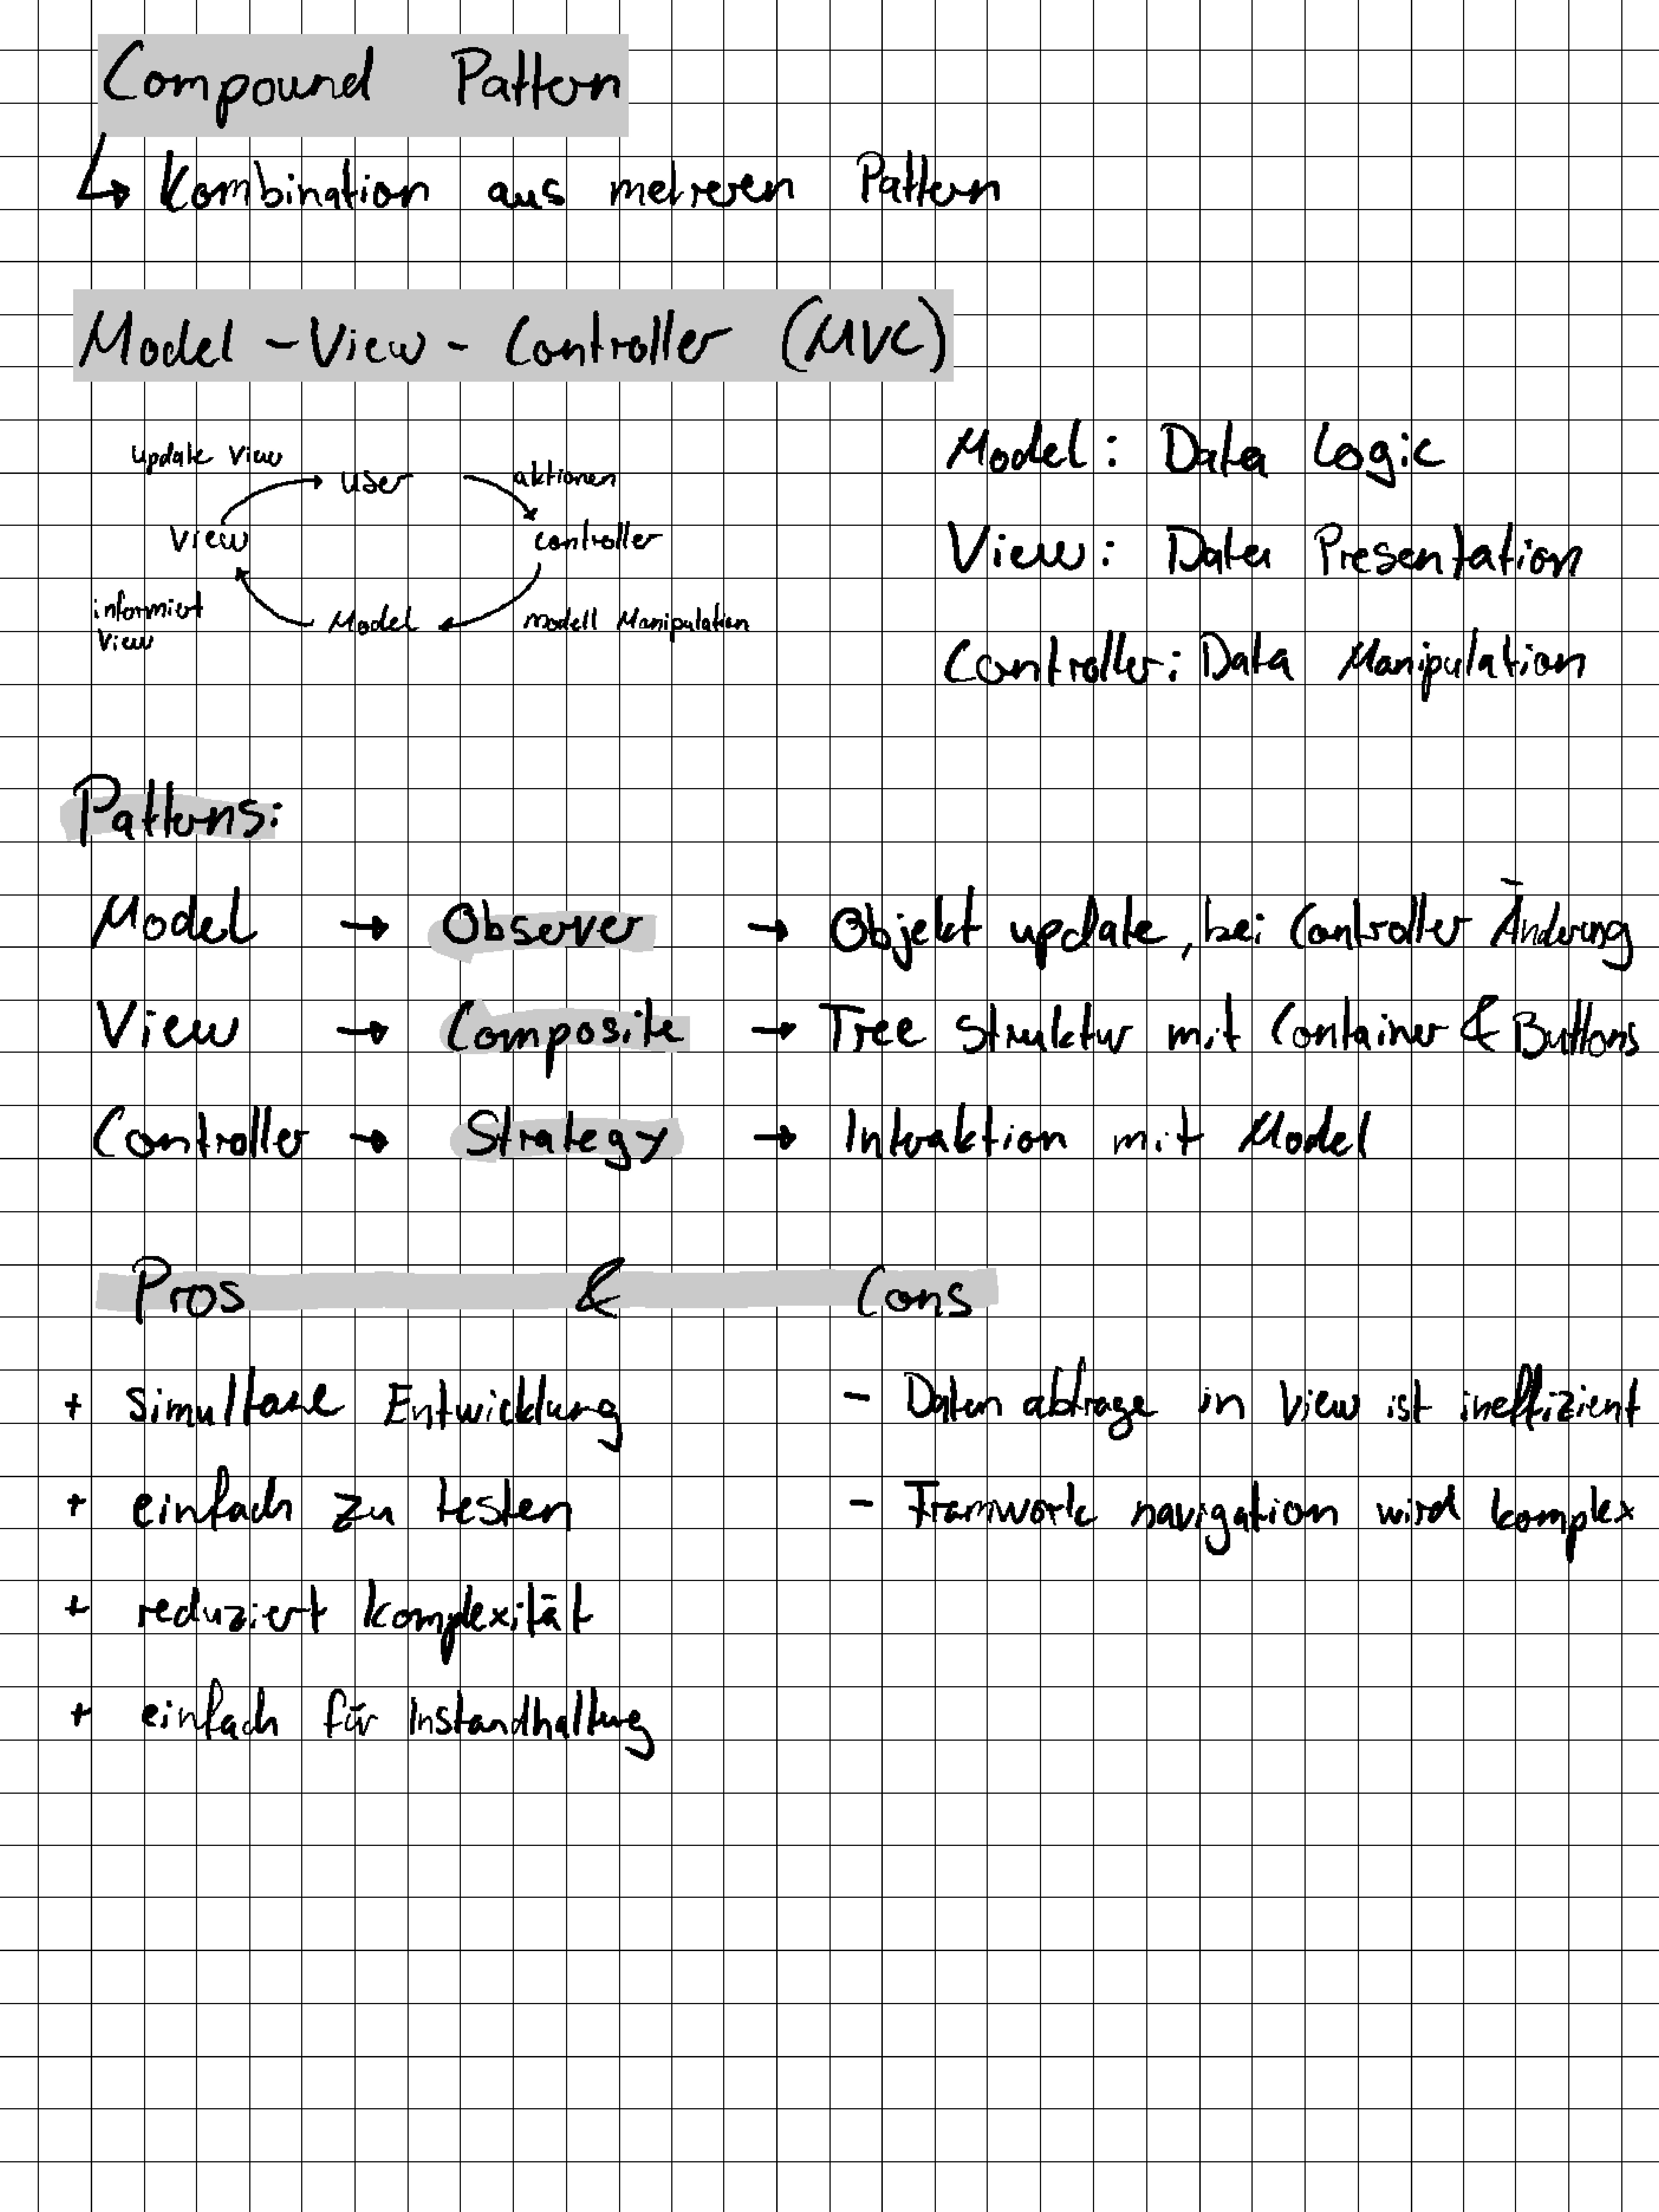 Compound Pattern
↳ Kombination aus mehreren Pattern
Model - View - Controller (MVC)
update View
user
aktionen
View
controller
informiert
View
Model
modell Manipulation
Model: Data Logic
View: Data Presentation
Controller: Data Manipulation
Patterns:
Model → Observer → Objekt update, bei Controller Änderung
View → Composite → Tree Struktur mit Container & Buttons
Controller → Strategy → Interaktion mit Model
Pros & Cons
+ simultane Entwicklung
- Daten abfrage in View ist ineffizient
+ einfach zu testen
- Framwork navigation wird komplex
+ reduziert komplexität
+ einfach für Instandhaltung